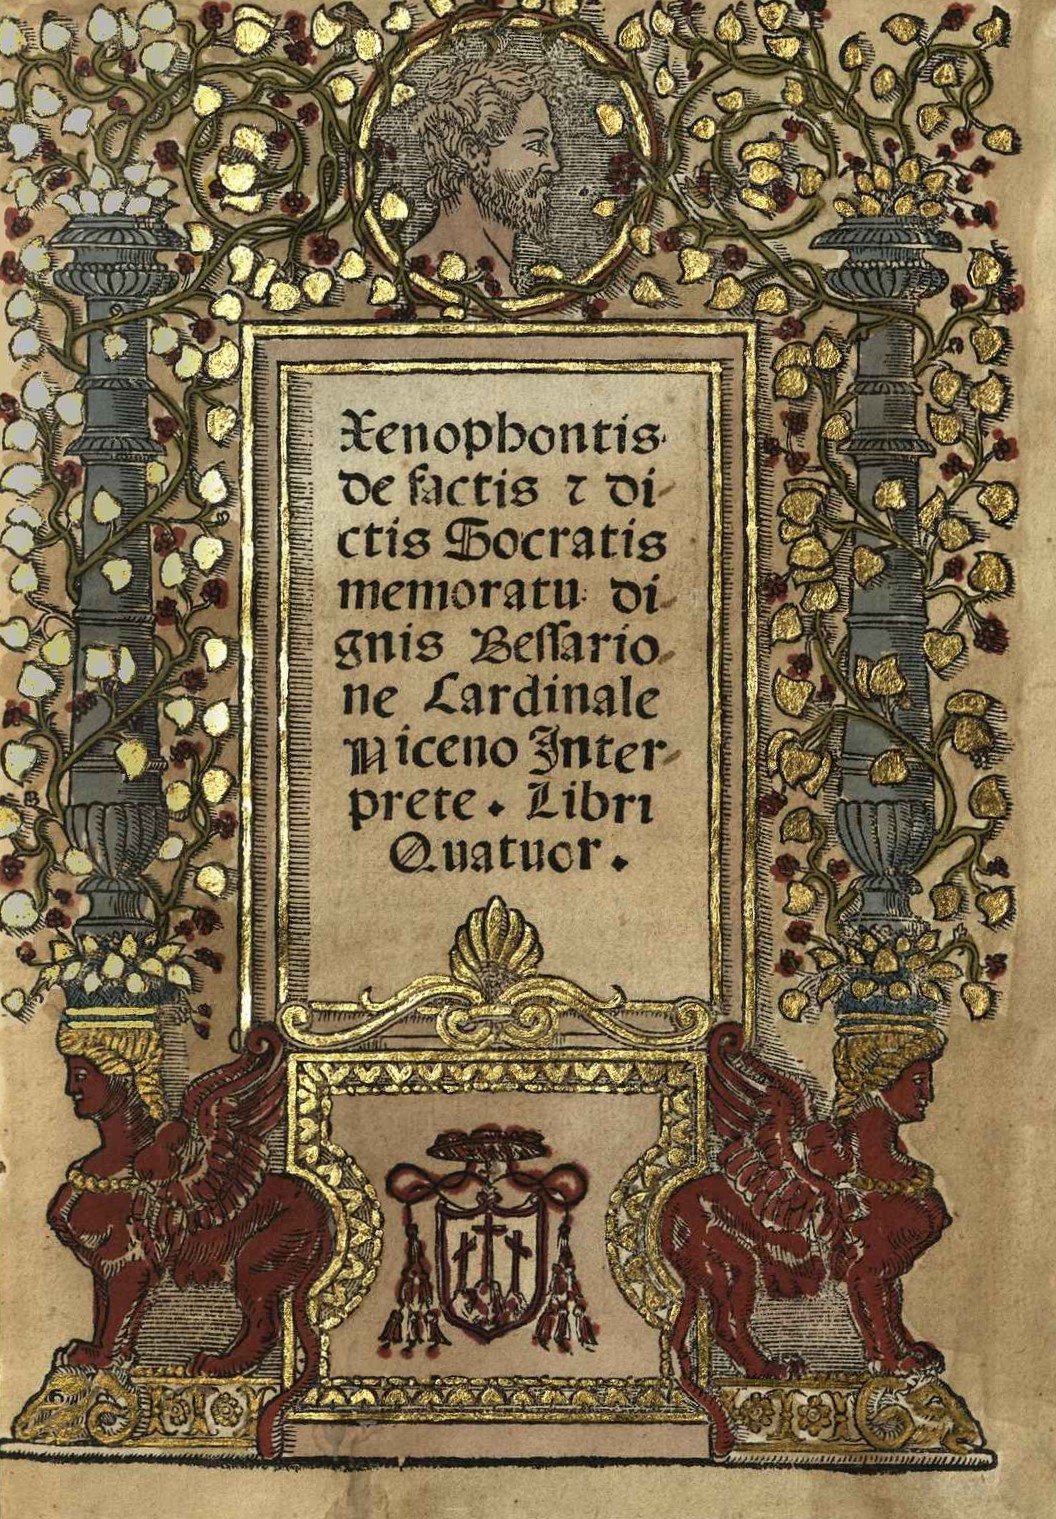 Xenophontis
de factis ⁊ di⸗
ctis Socratis
memoratu di⸗
gnis Bessario⸗
ne Cardinale
Niceno Inter⸗
prete. Libri
Quatuor.